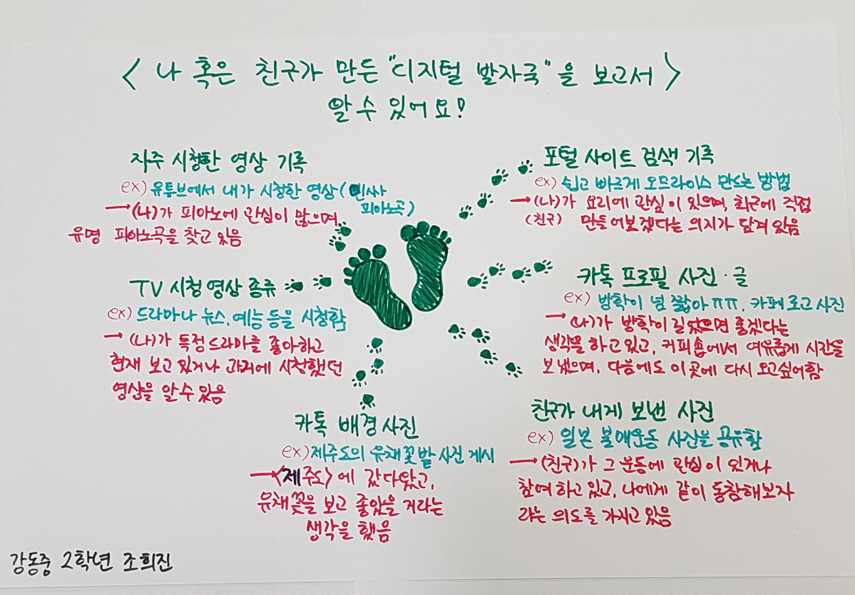 <나 혹은 친구가 만든 "디지털 발자국"을 보고서>
알 수 있어요!
자주 시청한 영상 기록
ex) 유튜브에서 내가 시청한 영상(인싸
피아노곡)
→(나)가 피아노에 관심이 많으며,
유명 피아노곡을 찾고 있음
TV 시청 영상 종류
ex) 드라마나 뉴스, 예능 등을 시청함
→ (나)가 특정 드라마를 좋아하고
현재 보고 있거나 과거에 시청했던
영상을 알 수 있음
카톡 배경 사진
ex) 제주도의 유채꽃밭 사진 게시
→<제주도>에 갔다왔고,
유채꽃을 보고 좋았을 거라는
생각을 했음
포털 사이트 검색 기록
ex) 쉽고 빠르게 오므라이스 만드는 방법
→(나)가 요리에 관심이 있으며, 최근에 직접
(친구) 만들어보겠다는 의지가 담겨 있음
카톡 프로필 사진·글
ex) 방학이 넘 짧아ㅠㅠ, 카페 로고 사진
→ (나)가 방학이 길었으면 좋겠다는
생각을 하고 있고, 커피숍에서 여유롭게 시간을
보냈으며, 다음에도 이 곳에 다시 오고싶어함
친구가 내게 보낸 사진
ex) 일본 불매운동 사진을 공유함
→(친구)가 그 운동에 관심이 있거나
참여 하고 있고, 나에게 같이 동참해보자
라는 의도를 가지고 있음
강동중 2학년 조희진